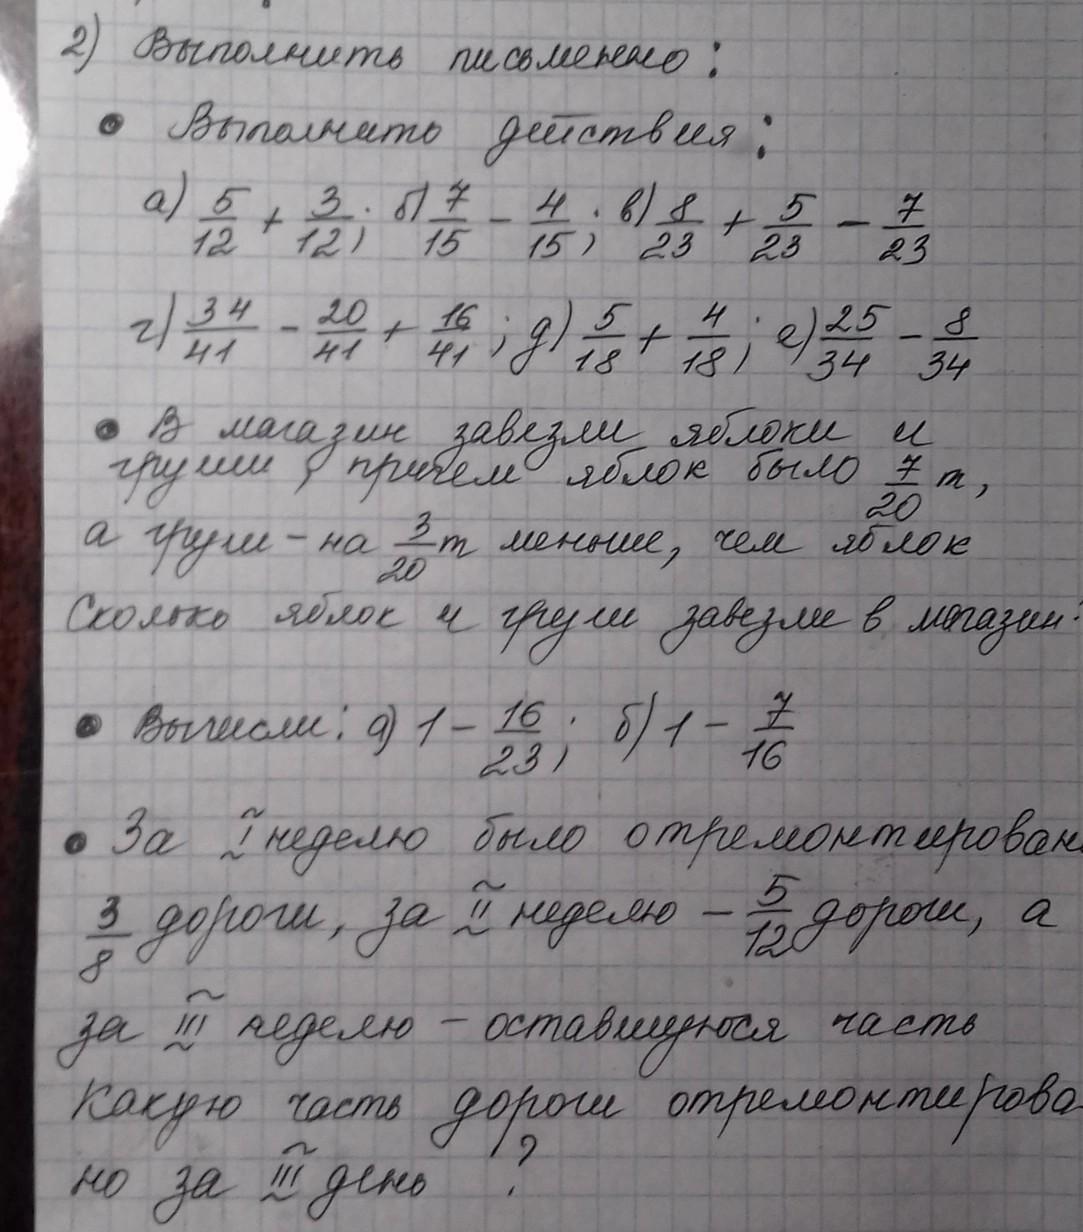 2) Выполнить письменно:
• Выполнить действия:
а) 5/12 + 3/12; б) 7/15 - 4/15; в) 8/23 + 5/23 - 7/23
г) 34/41 - 20/41 + 16/41; д) 5/18 + 4/18; е) 25/34 - 8/34
• В магазин завезли яблоки и
груши, причем яблок было 7/20 т,
а груш - на 3/20 т меньше, чем яблок
Сколько яблок и груш завезли в магазин
• Вычисли: а) 1 - 16/23; б) 1 - 7/16
• За I неделю было отремонтирован
3/8 дороги, за II неделю - 5/12 дороги, а
за III неделю - оставшуюся часть
Какую часть дороги отремонтирова
но за III день ?